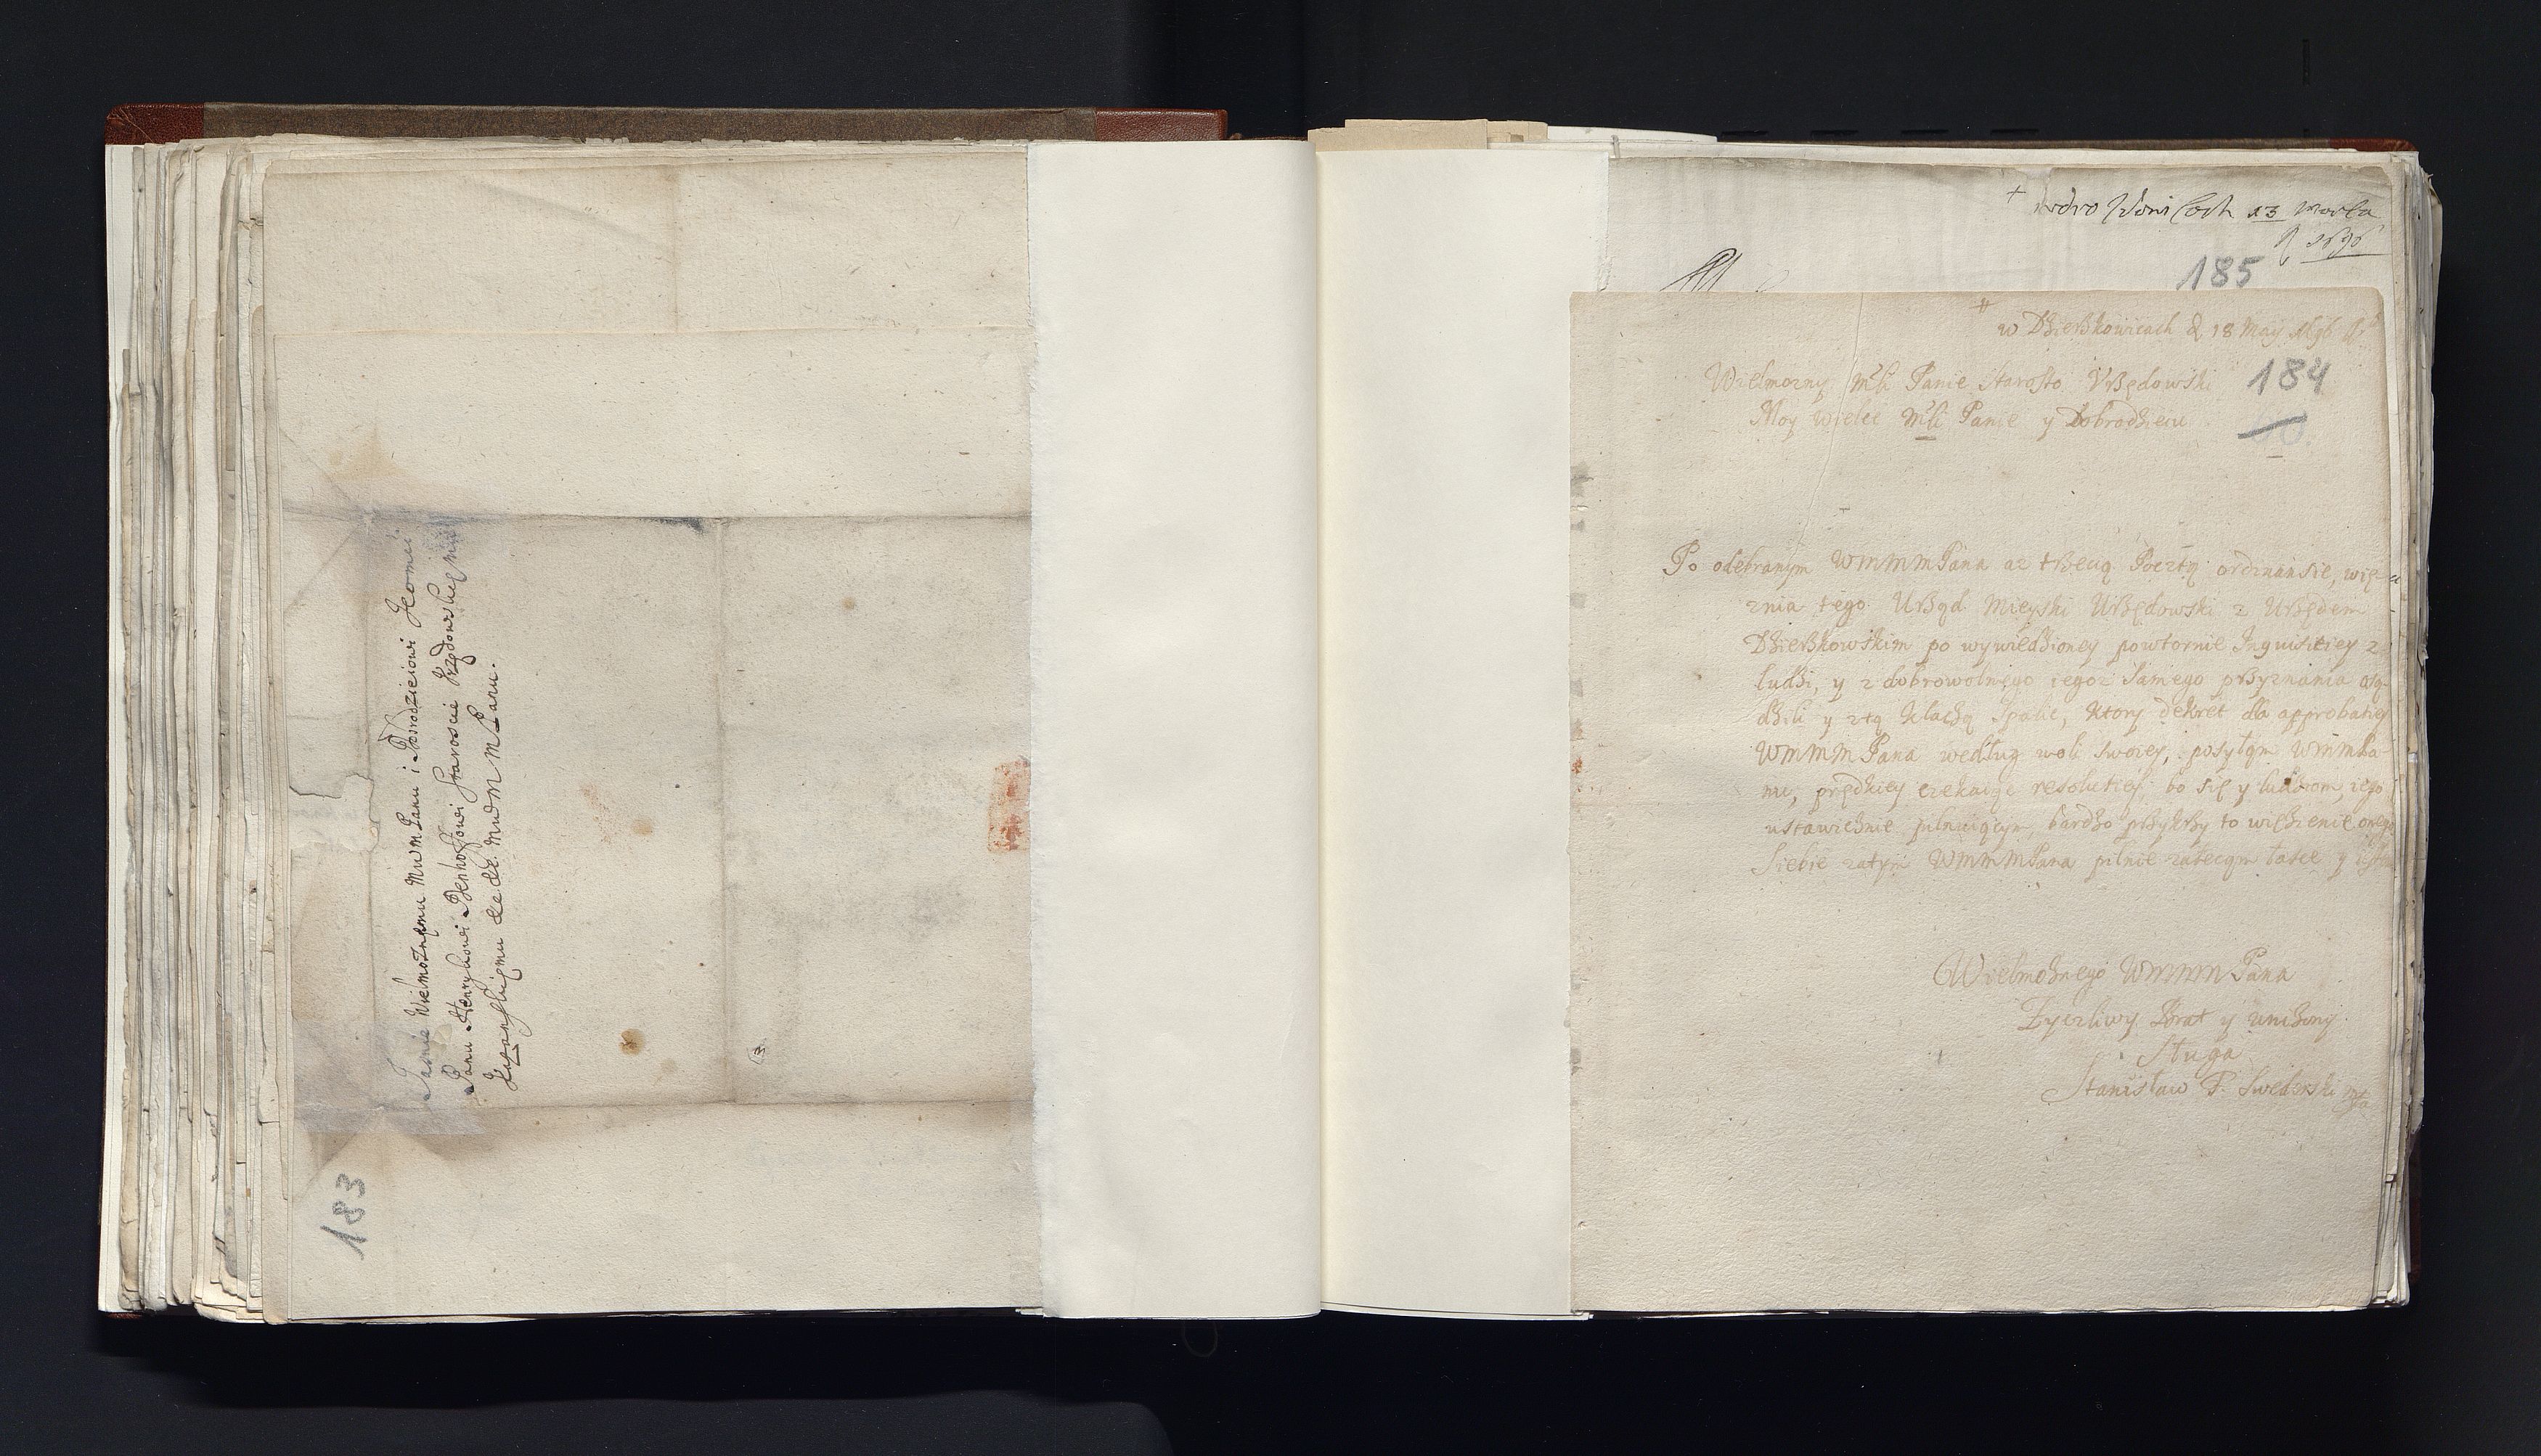 Jasnie Wielmoznęmu MWMPanu i Dobrodzieiowi Jeomci
Panu Henrykowi Denhoffowi Staroscie Vrzędowskięmu
&c &c. MWMM Panu.
183
13 Marta
185
w Dzierzkowicach d 18 May 1696
Wielmozny Mśći Panie Starosto Vrzędowski
184
Moy Wielce Mśći Panie y Dobrodzieiu
Po odebranym WMMMPana az trzecią Pocztą ordinansie, wię-
znia tego Urząd Mieyski Urzędowski z Urzędem
Dzierzkowskim po wywiedzioney powtornie Inquisitiey z
ludzi, y z dobrowolnęgo iegoz samego przyznania osą-
dzili y ztą klaczą spalic, ktory dekret dla approbatiey
WMMMPana według woli swoiey, posyłąm WMMPa-
nu, prędkiey czekaiąc resolutiey, bo się y ludziom, iego
ustawicznie pilnuiącym, bardzo przykrzy to więzienie onego
Siebie zatym WMMMPana pilnie zalecąm łasce y
Wielmoznego WMMMPana
Zyczliwy Brat y unizony
Sługa
Stanisław F. Swiderski mp